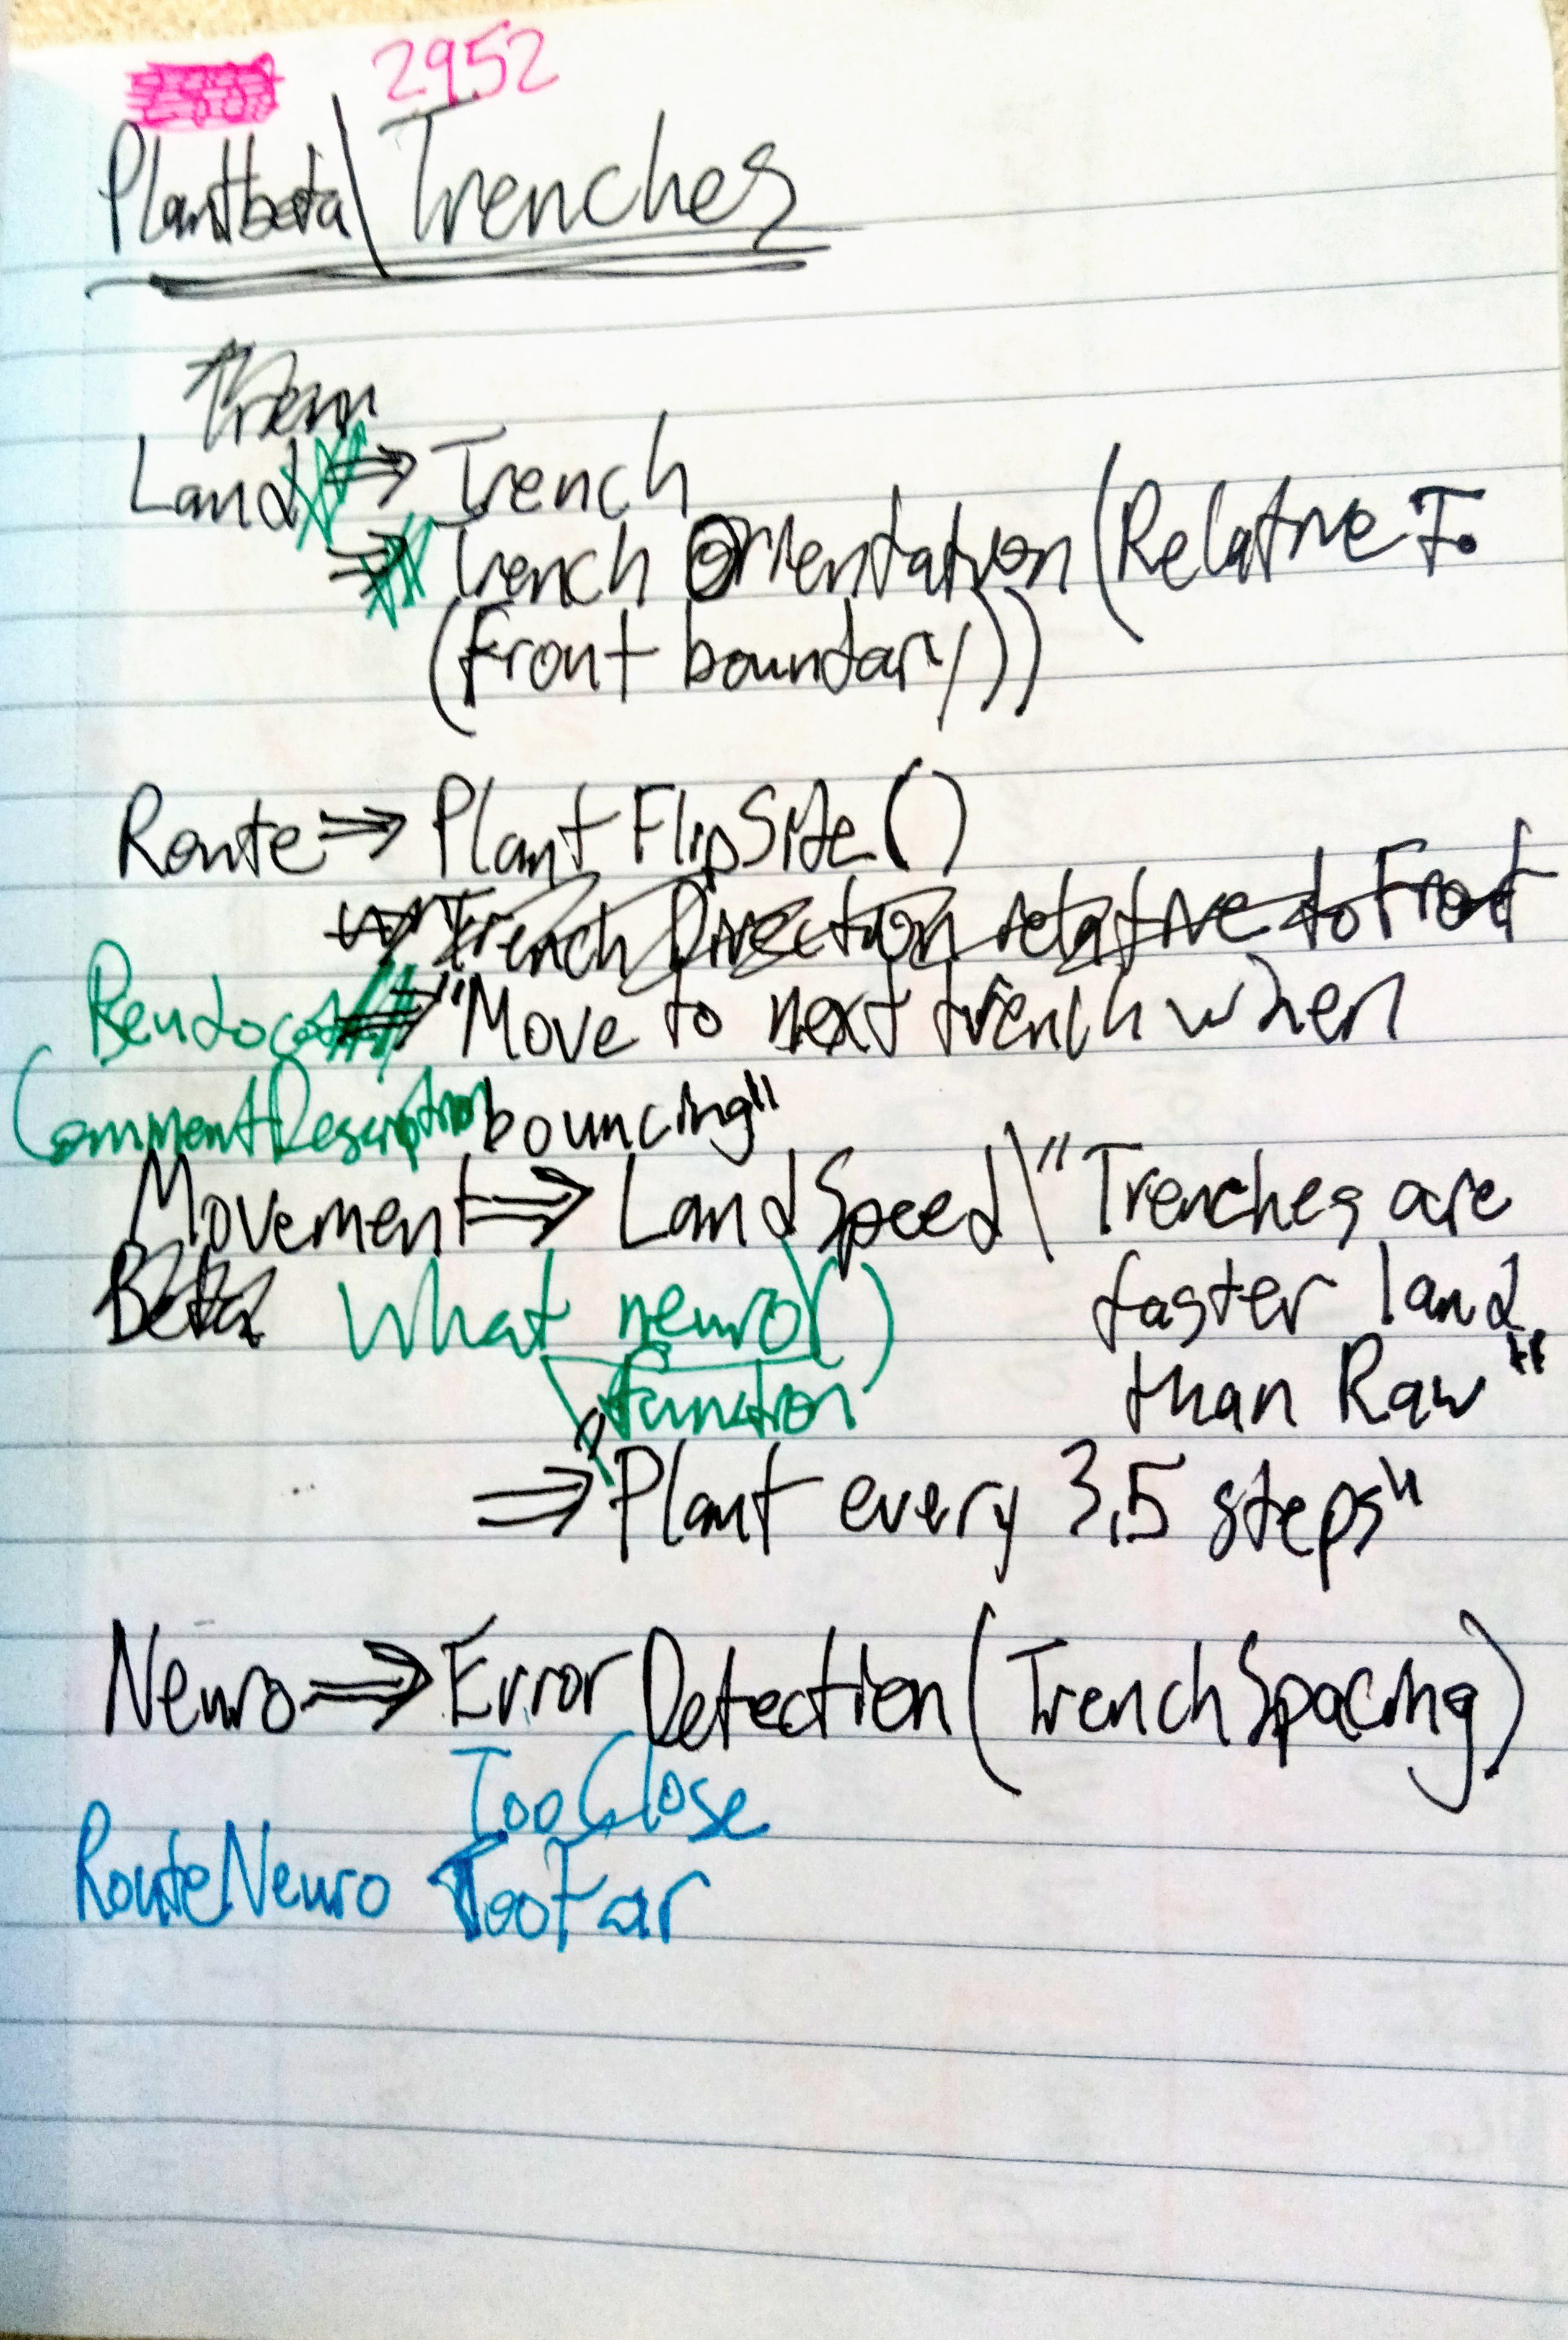 2952
Plantbeta\Trenches
Land ⇒ Trench
⇒ Trench Orientation (Relative To
(Front boundary))
Route ⇒ Plant FlipSite()
Trench Direction relative to Front
⇒ "Move to next trench when
CommentDescription bouncing"
Movement ⇒ LandSpeed\"Trenches are
Beta What neuro() faster land
function than Raw"
⇒ "Plant every 3.5 steps"
Neuro ⇒ Error Detection(TrenchSpacing)
TooClose
RouteNeuro TooFar